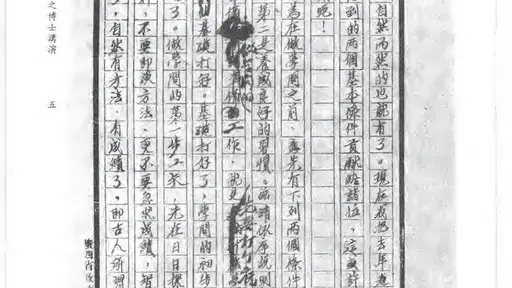 自然而然的也都有了。現在我把去年
到的兩個基本條件貢獻給諸位，這或許
晚！
為在做學問之前，應先有下列兩個條件
第二是養成良好的習慣。依序說明
工作，就是
的基礎打好。基礎打好了，學問的初步
了。做學問的第一步工夫，先在日日
好，不要即談方法，更不要急求成績，
，自然有方法，有成績了。即古人所謂
廣西省政
之博士講演 五